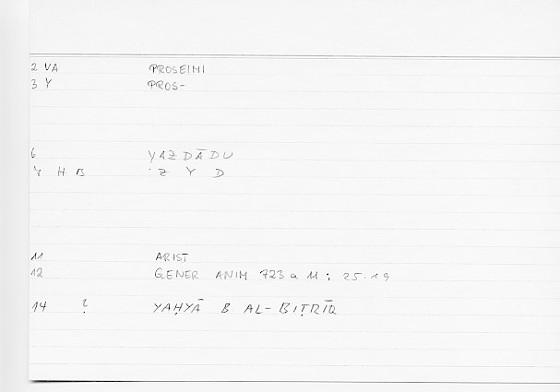 2 VA PROSEIMI
3 Y PROS-
6 YAZDĀDU
Y H B ʿZ Y D
11 ARIST
12 GENER ANIM 723 a 11 ; 25.19
14 ? YAḤYĀ B AL-BIṬRĪQ